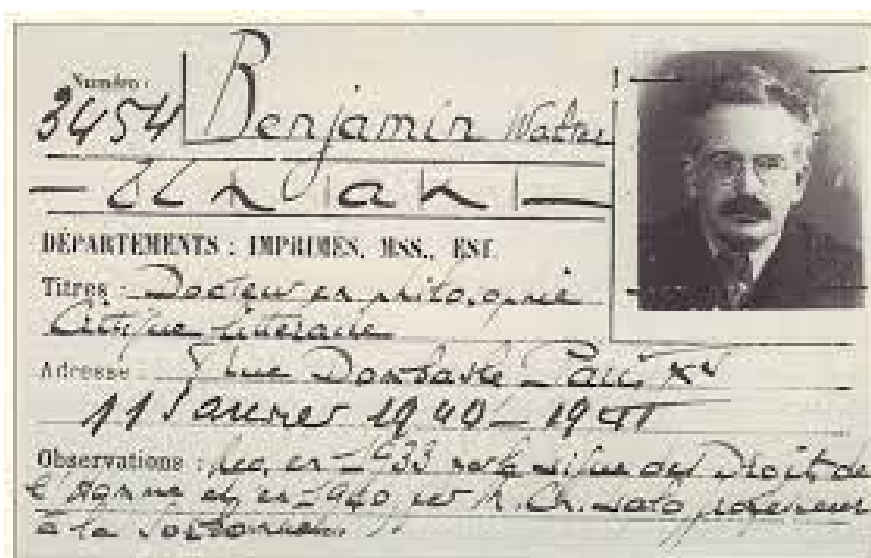 Numéro :
3454 Benjamin Walter
DÉPARTEMENTS : IMPRIMÉS, MSS., EST.
Titres : Docteur en philosophie
Critique littéraire
Adresse : rue Dombasle Paris XV
11 Janvier 1940 - 1941
Observations : en 1933 des Droits de
et en 1940 par professeur
à la Sorbonne.